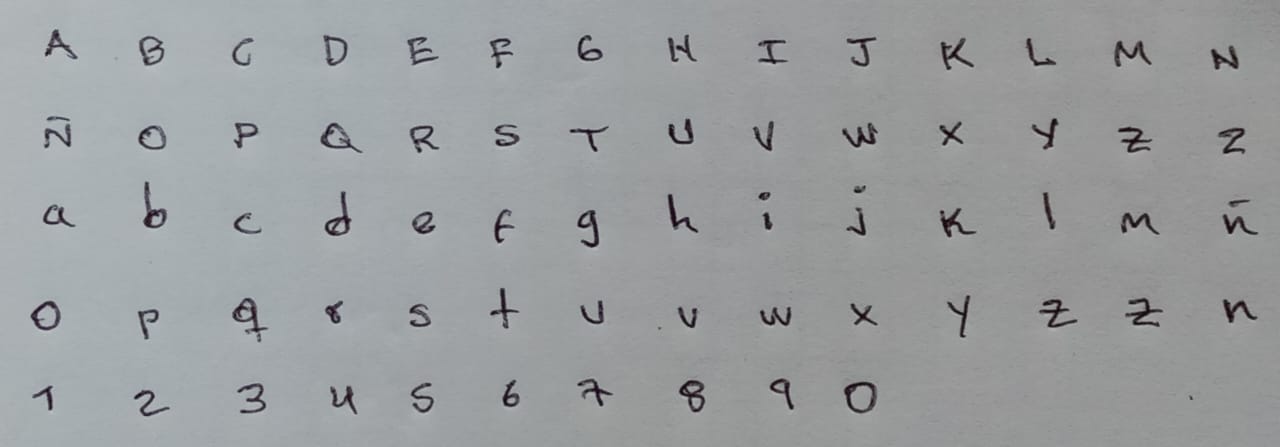 A B C D E F G H I J K L M N
Ñ O P Q R S T U V W X Y Z Z
a b c d e f g h i j k l m ñ
o p q r s t u v w x y z z n
1 2 3 4 5 6 7 8 9 0